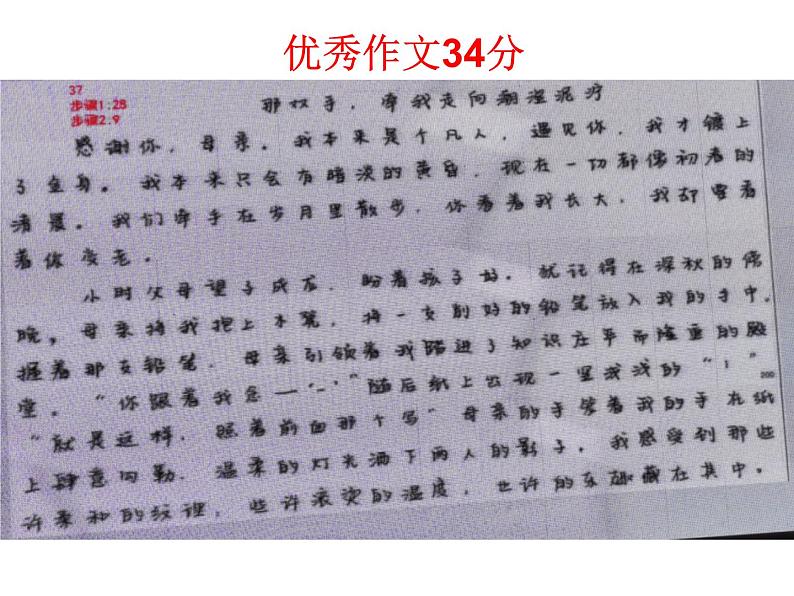 优秀作文34分
37
步骤1:28
步骤2.9
那双手，牵我走向潮湿泥泞
感谢你，母亲。我本来是个凡人，遇见你，我才镀上
了金身。我本来只会有暗淡的黄昏，现在一切都像初春的
清晨。我们牵手在岁月里散步，你看着我长大，我却要看
着你变老。
小时父母望子成龙，盼着孩子好。就记得在深秋的傍
晚，母亲将我抱上木凳，将一支削好的铅笔放入我的手中。
握着那支铅笔，母亲引领着我踏进了知识庄严而隆重的殿
堂。“你跟着我念——‘一’”随后纸上出现一竖浅浅的“1”
200
“就是这样，照着前面那个写”母亲的手拿着我的手在纸
上肆意勾勒。温柔的灯光洒下两人的影子，我感受到那些
许柔和的纹理，些许滚烫的温度，也许的乐趣藏在其中。